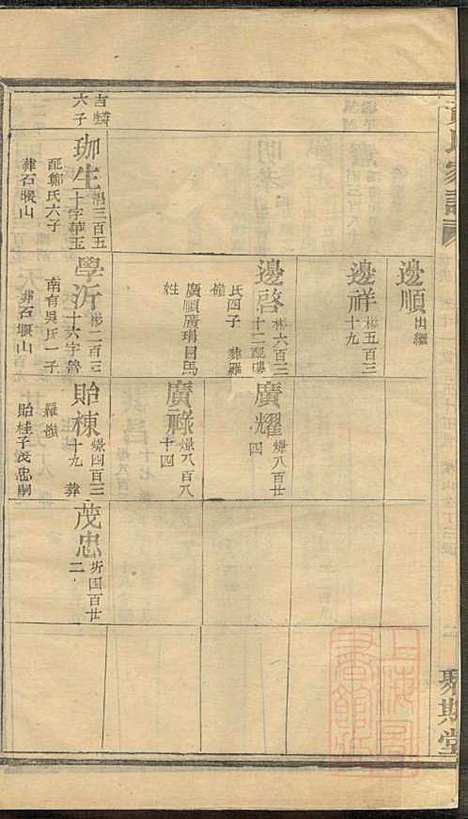 氏家譜
聚斯堂
邊順 出繼
邊祥 彬五百三十九
邊啓 彬六百三十二 配
氏四子 葬羅嶺
廣順廣 日馬姓
廣耀 燝八百廿四
廣祿 燝八百八十四
吉麟六子
珈生 湝三百五十 字華玉
配鄭氏六子
葬石堰山
學沂 彬二百三十六 字魯南
有吳氏一子
葬石堰山
貽棟 燝四百三十九 葬羅嶺
貽桂子茂忠嗣
茂忠 圻四百廿二